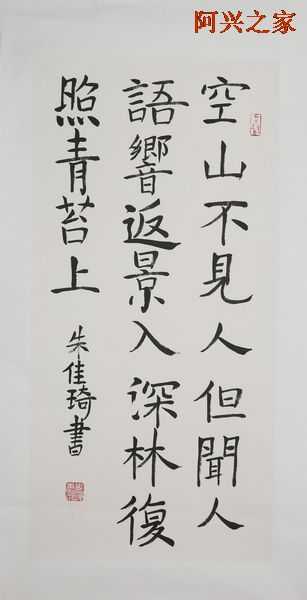 阿兴之家
空山不見人但聞人
語響返景入深林復
照青苔上
朱佳琦書